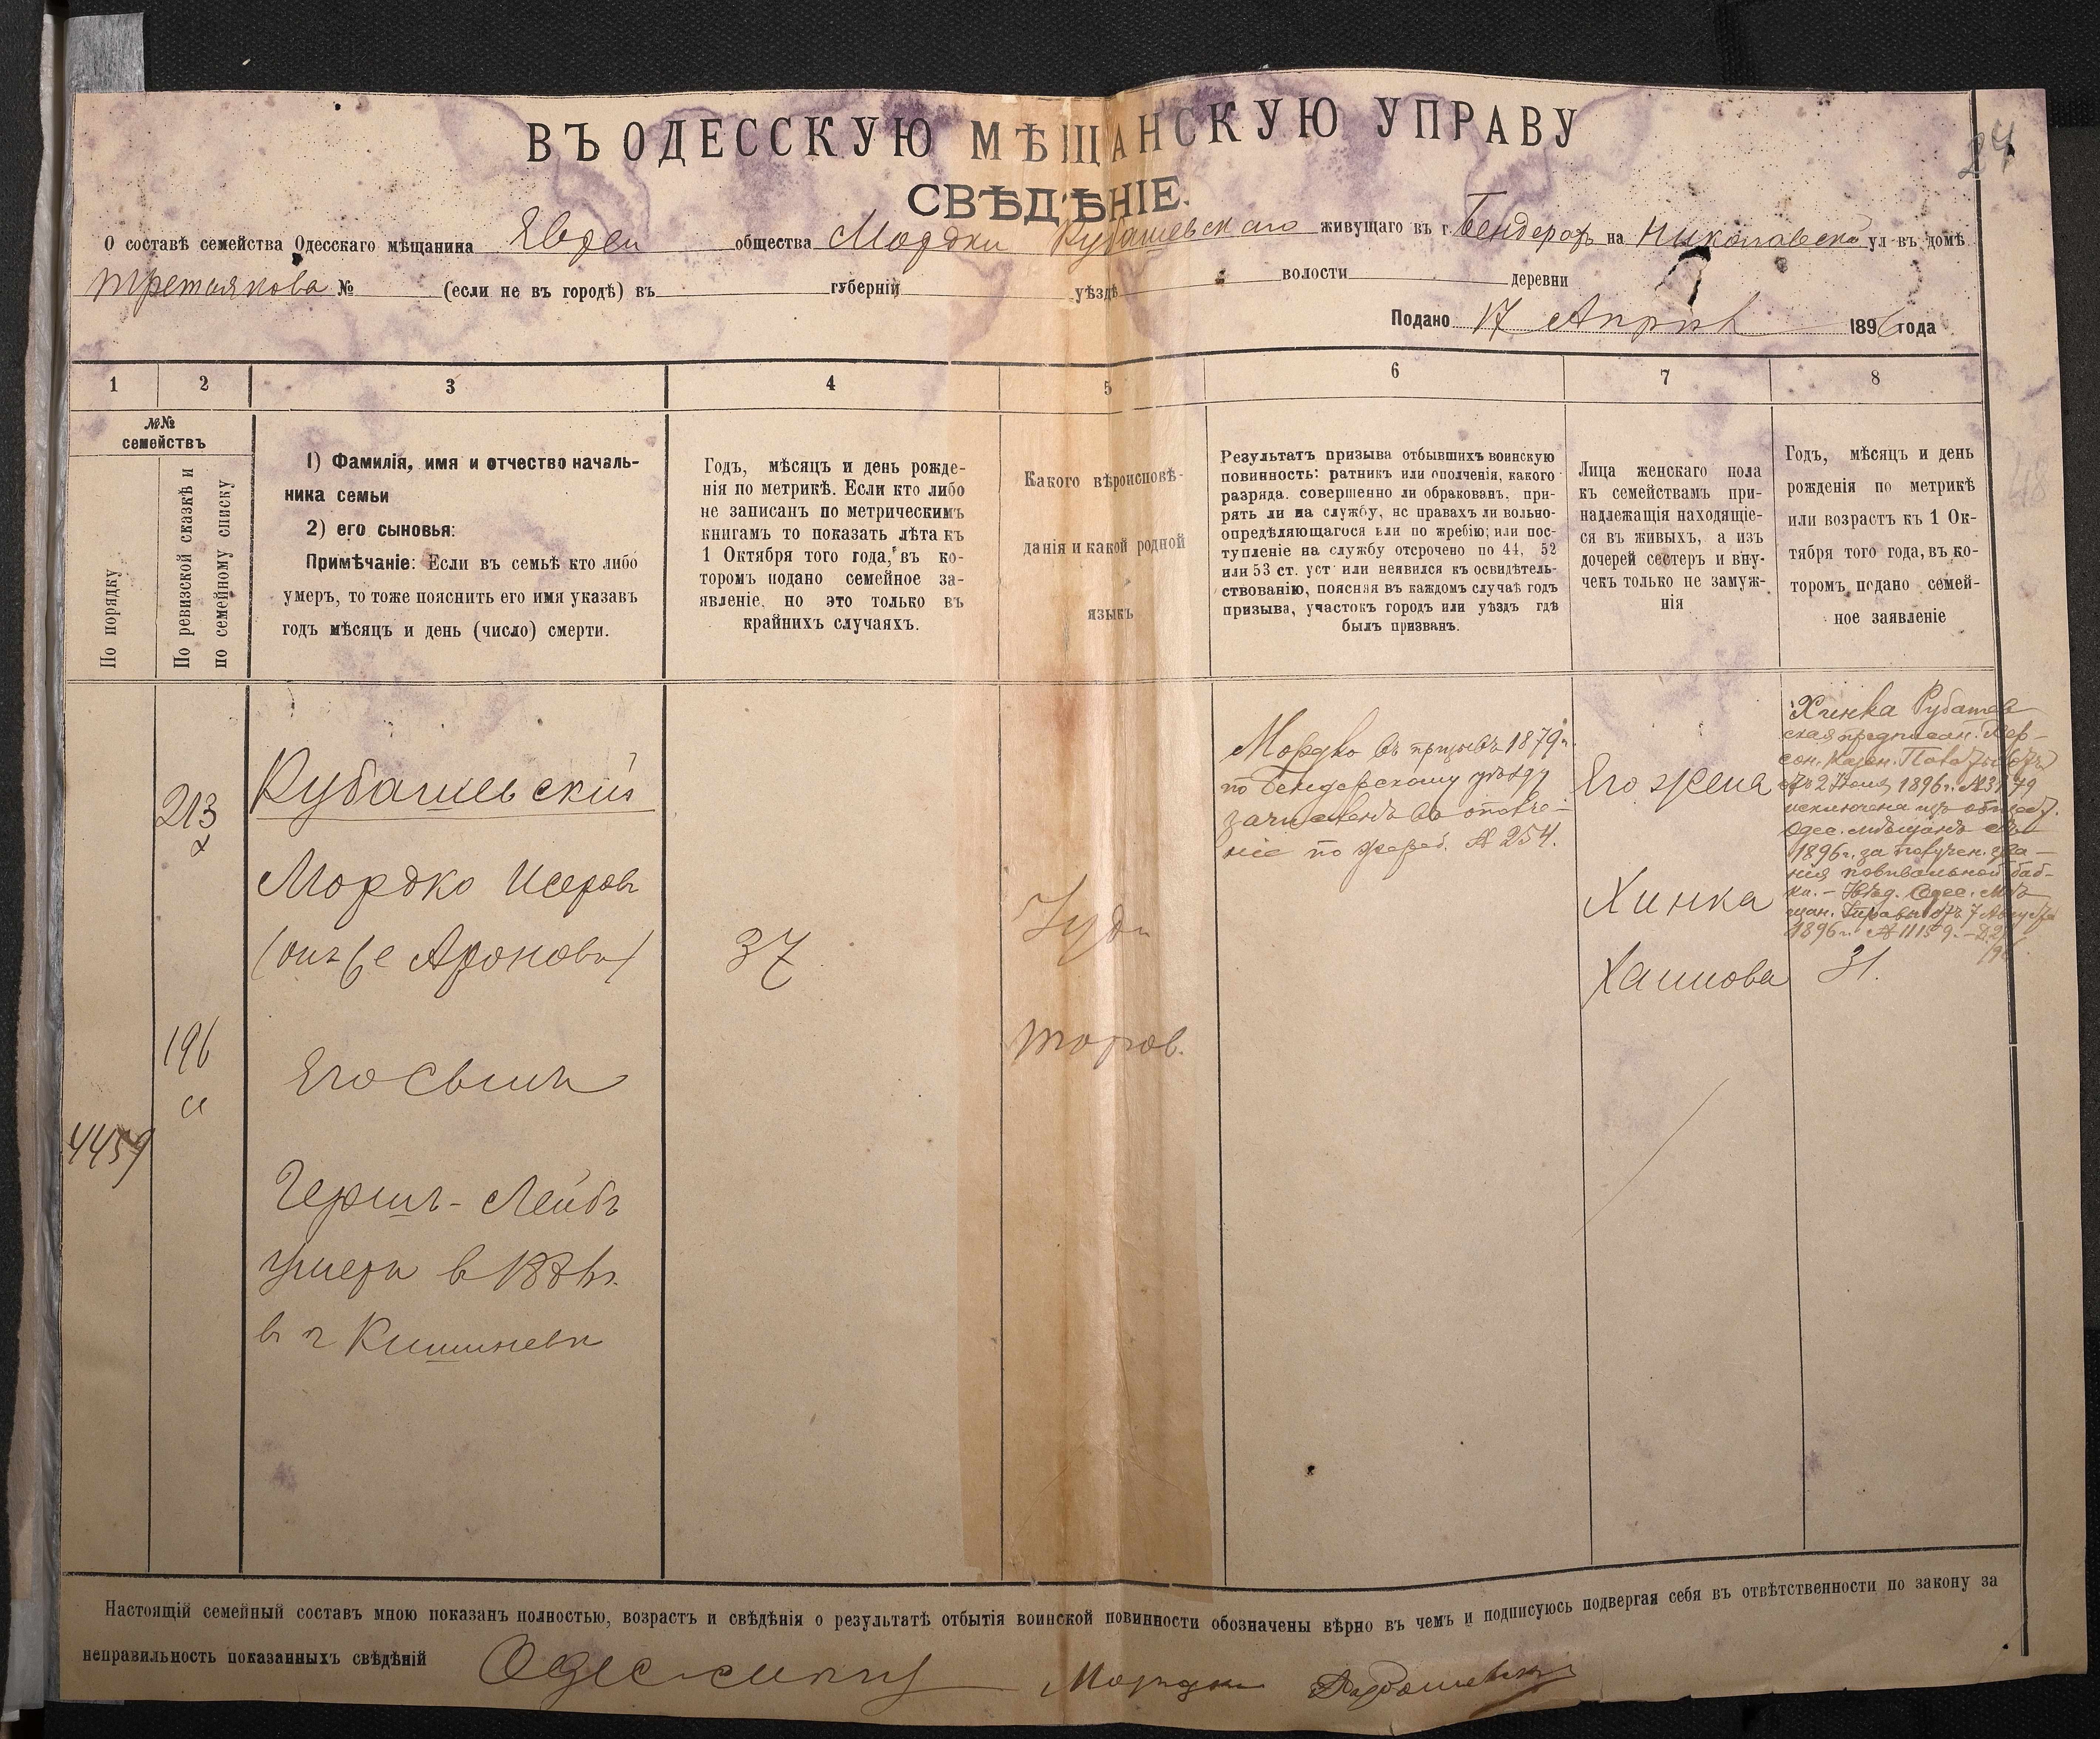 24
ВЪ ОДЕССКУЮ МѢЩАНСКУЮ УПРАВУ
СВѢДѢНІЕ.
О составѣ семейства Одесскаго мѣщанина Еврея общества Мордки Рубашевскаго живущаго въ г. Бендерахъ на Николаевской ул въ домѣ
Третьякова № (если не въ городѣ) въ губерніи уѣздѣ волости деревни
Подано 17 Апрѣля 1896 года
1 2 3 4 5 6 7 8
№№
семействъ
По порядку
По ревизской сказкѣ и
по семейному списку
1) Фамилія, имя и отчество началь-
ника семьи
2) его сыновья:
Примѣчаніе: Если въ семьѣ кто либо
умеръ, то тоже пояснить его имя указавъ
годъ мѣсяцъ и день (число) смерти.
Годъ, мѣсяцъ и день рожде-
нія по метрикѣ. Если кто либо
не записанъ по метрическимъ
книгамъ то показать лѣта къ
1 Октября того года, въ ко-
торомъ подано семейное за-
явленіе, но это только въ
крайнихъ случаяхъ.
Какого вѣроисповѣ-
данія и какой родной
языкъ
Результатъ призыва отбывшихъ воинскую
повинность: ратникъ или ополченія, какого
разряда. совершенно ли обракованъ, при-
рятъ ли на службу, нс правахъ ли вольно-
опредѣляющагося или по жребію; или пос-
тупленіе на службу отсрочено по 44, 52
или 53 ст. уст или неявился къ освидѣтель-
ствованію, поясняя въ каждомъ случаѣ годъ
призыва, участокъ городъ или уѣздъ гдѣ
былъ призванъ.
Лица женскаго пола
къ семействамъ при-
надлежащія находящіе-
ся въ живыхъ, а изъ
дочерей сестеръ и вну-
чекъ только не замуж-
нія
Годъ, мѣсяцъ и день
рожденія по метрикѣ
или возрастъ къ 1 Ок-
тября того года, въ ко-
торомъ подано семей-
ное заявленіе
213
196
4459
Рубашевскій
Мордко Исеровъ
(онъ же Ароновъ)
Его сынъ
Гершъ-Лейбъ
умеръ в
в г Кишиневѣ
37
Іуд
Мордко въ призывъ 1879 г.
по Бендерскому уѣзду
зачисленъ въ ополче-
ніе по жреб. № 254.
Его жена
Хинка
Хаимова
Хинка Рубашев
ская предписан. Хер-
сон. Казен. Палаты отъ
2 1896 г.
исключена изъ общест.
Одес. мѣщанъ съ
1896 г. за получен. зва-
нія повивальной баб-
ки. – Одес. Мѣ-
щан. Управы отъ 7 Августа
1896 г. № 11159.
31.
Настоящій семейный составъ мною показанъ полностью, возрастъ и свѣдѣнія о результатѣ отбытія воинской повинности обозначены вѣрно въ чемъ и подписуюсь подвергая себя въ отвѣтственности по закону за
неправильность показанныхъ свѣдѣній Мордко Рубашевскій